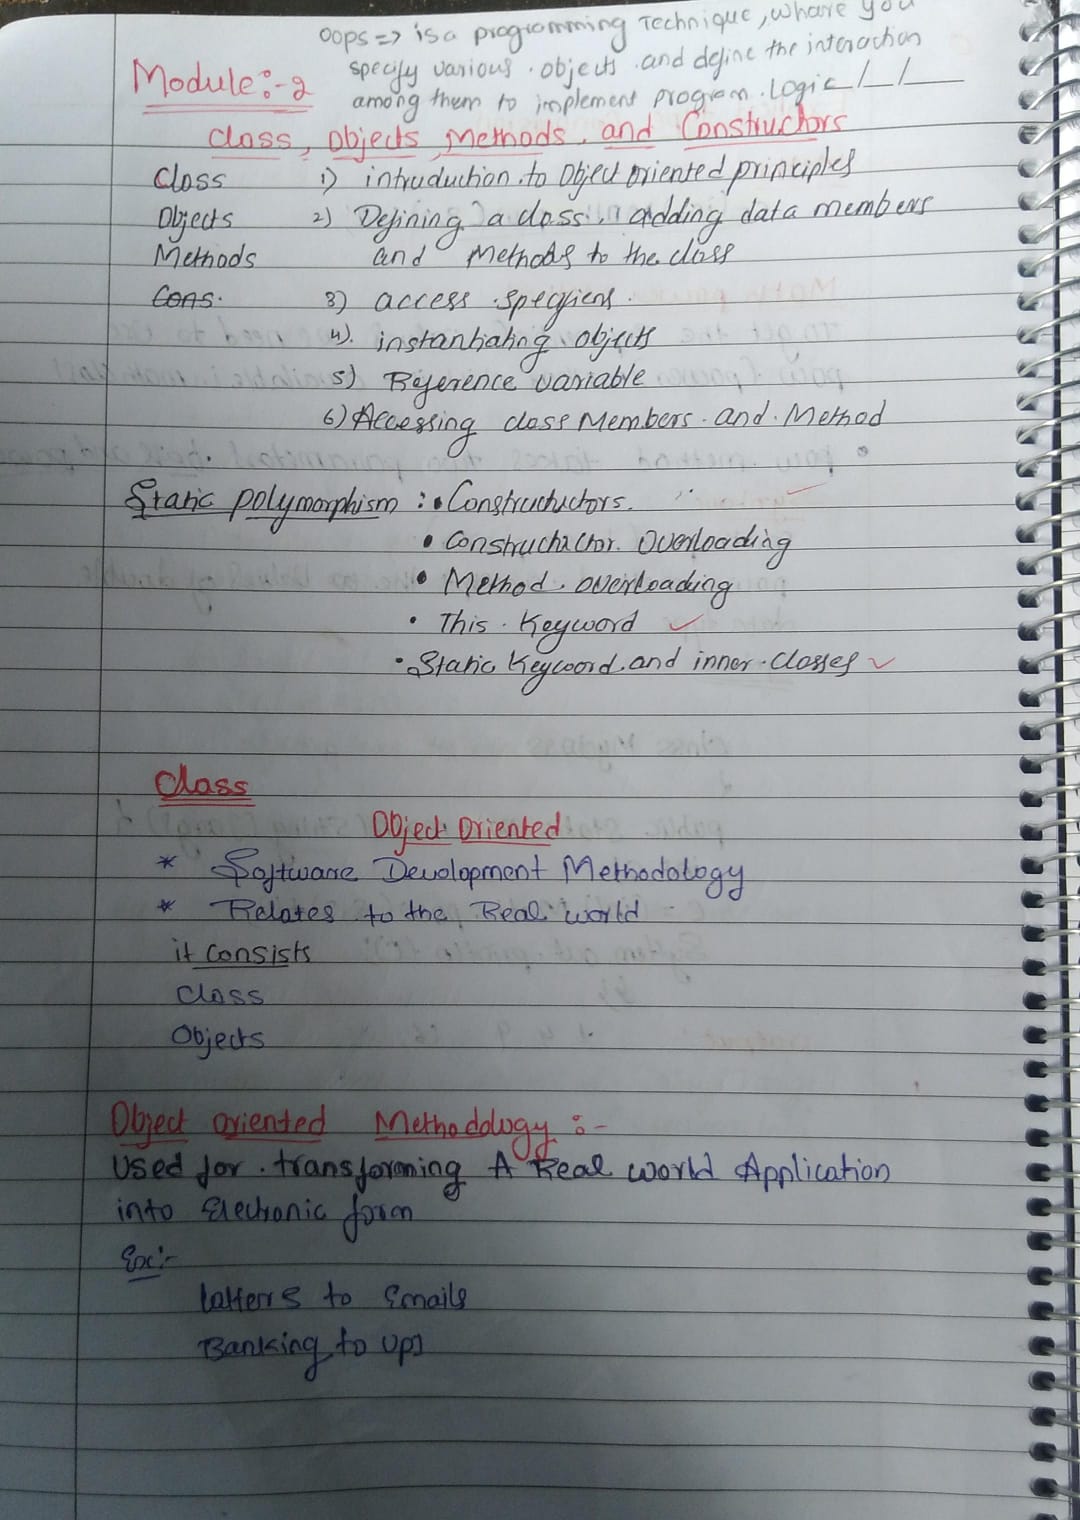 OOPS => is a programming Technique, whare you
specify various objects and define the interaction
among them to implement program logic
Module:-2
Class, Objects, Methods, and Constructors
Class 1) intruduction to Object Oriented principles
Objects 2) Defining a class, adding data members
Methods and Methods to the class
Cons. 3) access specifiers.
4). instantiating objects
5) Reference variable
6) Accessing class Members and Method
Static polymorphism : • Constructuctors.
• Constructuctor Overloading
• Method overloading
• This Keyword
• Static Keyword and inner Classes
Class
Object Oriented
* Software Development Methodology
* Relates to the Real world
it consists
Class
Objects
Object oriented Methodology :-
Used for transforming A Real world Application
into Electronic form
Ex:-
Latters to Emails
Banking to UPI